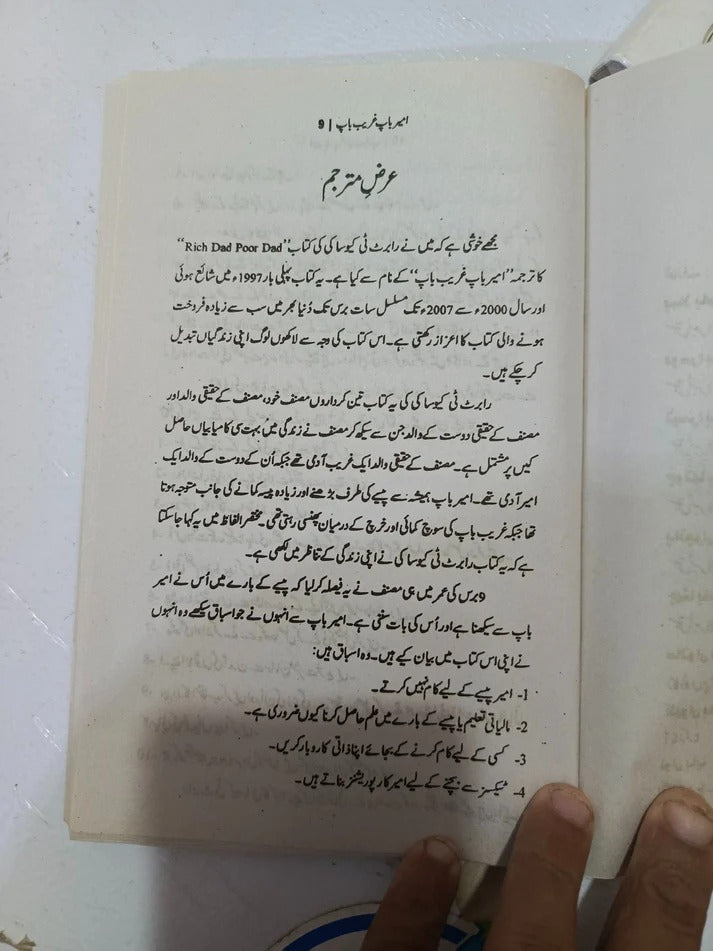 امیر باپ غریب باپ | 9
عرضِ مترجم
مجھے خوشی ہے کہ میں نے رابرٹ ٹی کیوساکی کی کتاب "Rich Dad Poor Dad"
کا ترجمہ "امیر باپ غریب باپ" کے نام سے کیا ہے۔ یہ کتاب پہلی بار 1997ء میں شائع ہوئی
اور سال 2000ء سے 2007ء تک مسلسل سات برس تک دُنیا بھر میں سب سے زیادہ فروخت
ہونے والی کتاب کا اعزاز رکھتی ہے۔ اس کتاب کی وجہ سے لاکھوں لوگ اپنی زندگیاں تبدیل
کر چکے ہیں۔
رابرٹ ٹی کیوساکی کی یہ کتاب تین کرداروں مصنف خود، مصنف کے حقیقی والد اور
مصنف کے حقیقی دوست کے والد جن سے سیکھ کر مصنف نے زندگی میں بہت سی کامیابیاں حاصل
کیں پر مشتمل ہے۔ مصنف کے حقیقی والد ایک غریب آدمی تھے جبکہ اُن کے دوست کے والد ایک
امیر آدمی تھے۔ امیر باپ ہمیشہ سے پیسے کی طرف بڑھنے اور زیادہ پیسہ کمانے کی جانب متوجہ ہوتا
تھا جبکہ غریب باپ کی سوچ کمائی اور خرچ کے درمیان پھنسی رہتی تھی۔ مختصر الفاظ میں یہ کہا جا سکتا
ہے کہ یہ کتاب رابرٹ ٹی کیوساکی نے اپنی زندگی کے تناظر میں لکھی ہے۔
9 برس کی عمر میں ہی مصنف نے یہ فیصلہ کر لیا کہ پیسے کے بارے میں اُس نے امیر
باپ سے سیکھنا ہے اور اُس کی بات سننی ہے۔ امیر باپ سے انہوں نے جو اسباق سیکھے وہ انہوں
نے اپنی اس کتاب میں بیان کیے ہیں۔ وہ اسباق ہیں:
1- امیر پیسے کے لیے کام نہیں کرتے۔
2- مالیاتی تعلیم یا پیسے کے بارے میں علم حاصل کرنا کیوں ضروری ہے۔
3- کسی کے لیے کام کرنے کے بجائے اپنا ذاتی کاروبار کریں۔
4- ٹیکسز سے بچنے کے لیے امیر کارپوریشنز بناتے ہیں۔